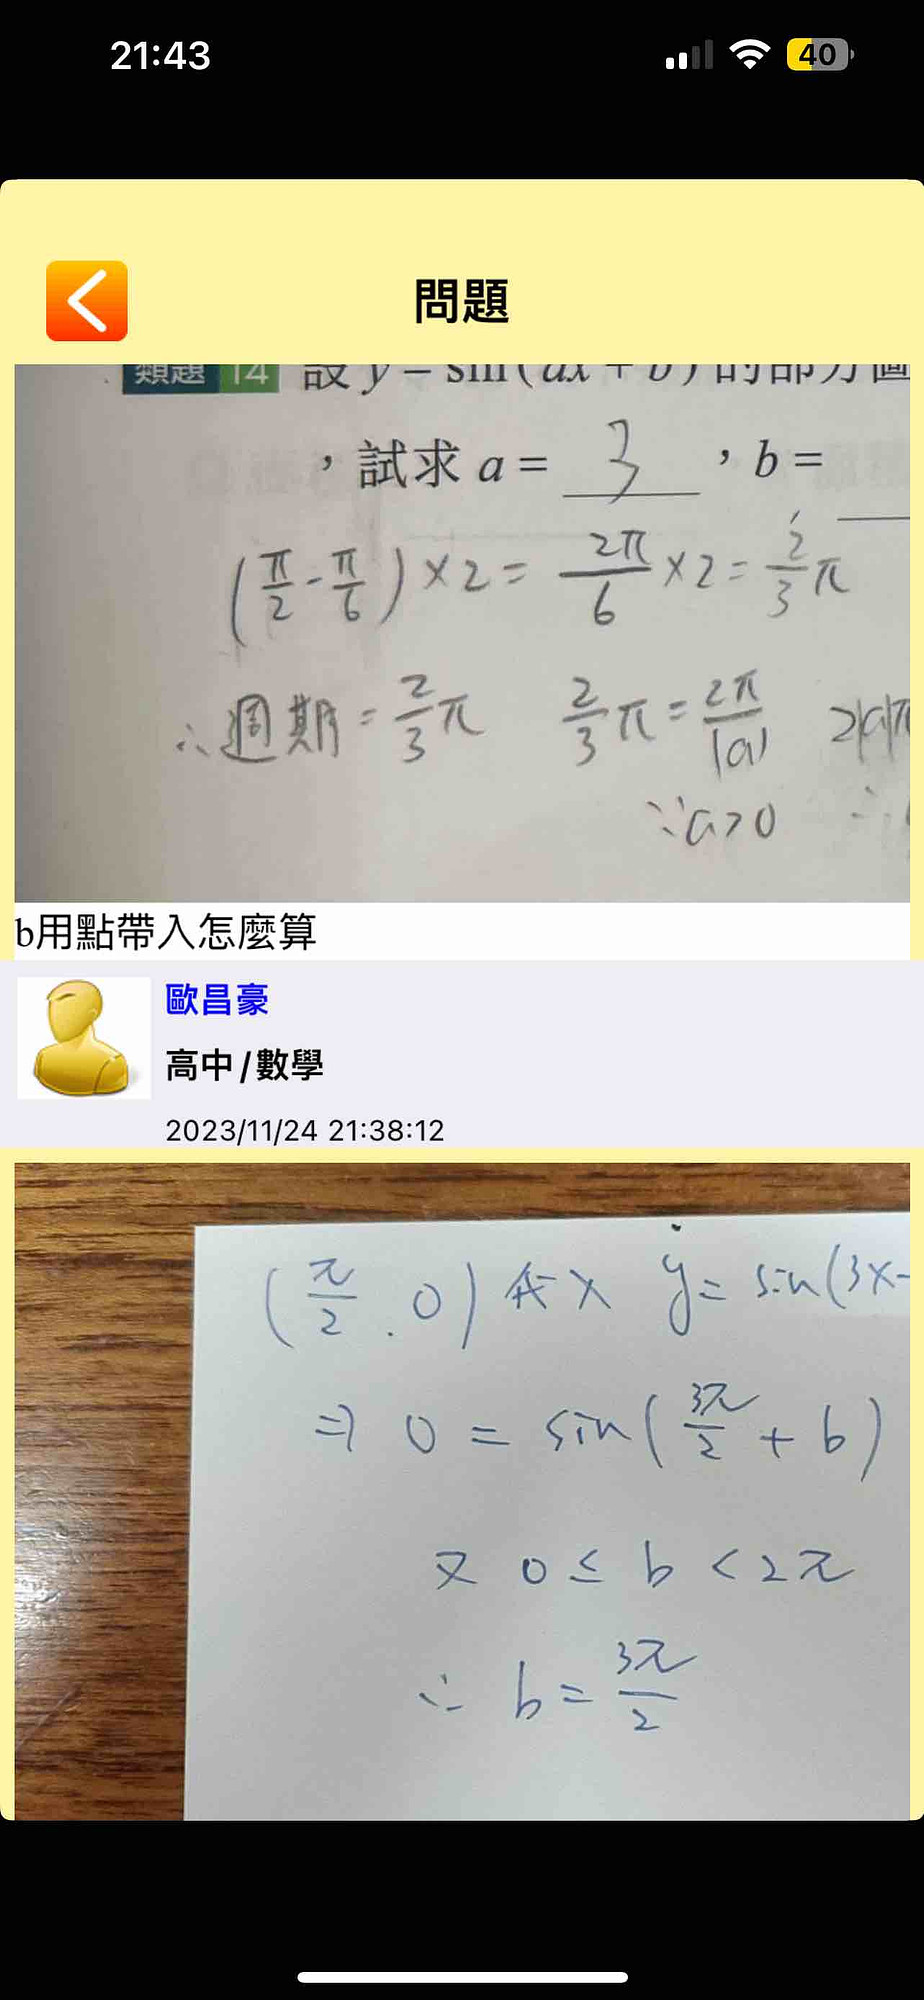 21:43
40
問題
類題 14 設 y = sin(ax + b) 的部分圖
，試求 a = 3 ，b =
(π/2 - π/6) × 2 = 2π/6 × 2 = 2/3 π
∴週期 = 2/3 π 2/3 π = 2π/|a| 2|a|π
∵a>0 ∴
b用點帶入怎麼算
歐昌豪
高中/數學
2023/11/24 21:38:12
(π/2 . 0) 代入 y = sin(3x
⇒ 0 = sin(3π/2 + b)
又 0 ≤ b < 2π
∴ b = 3π/2